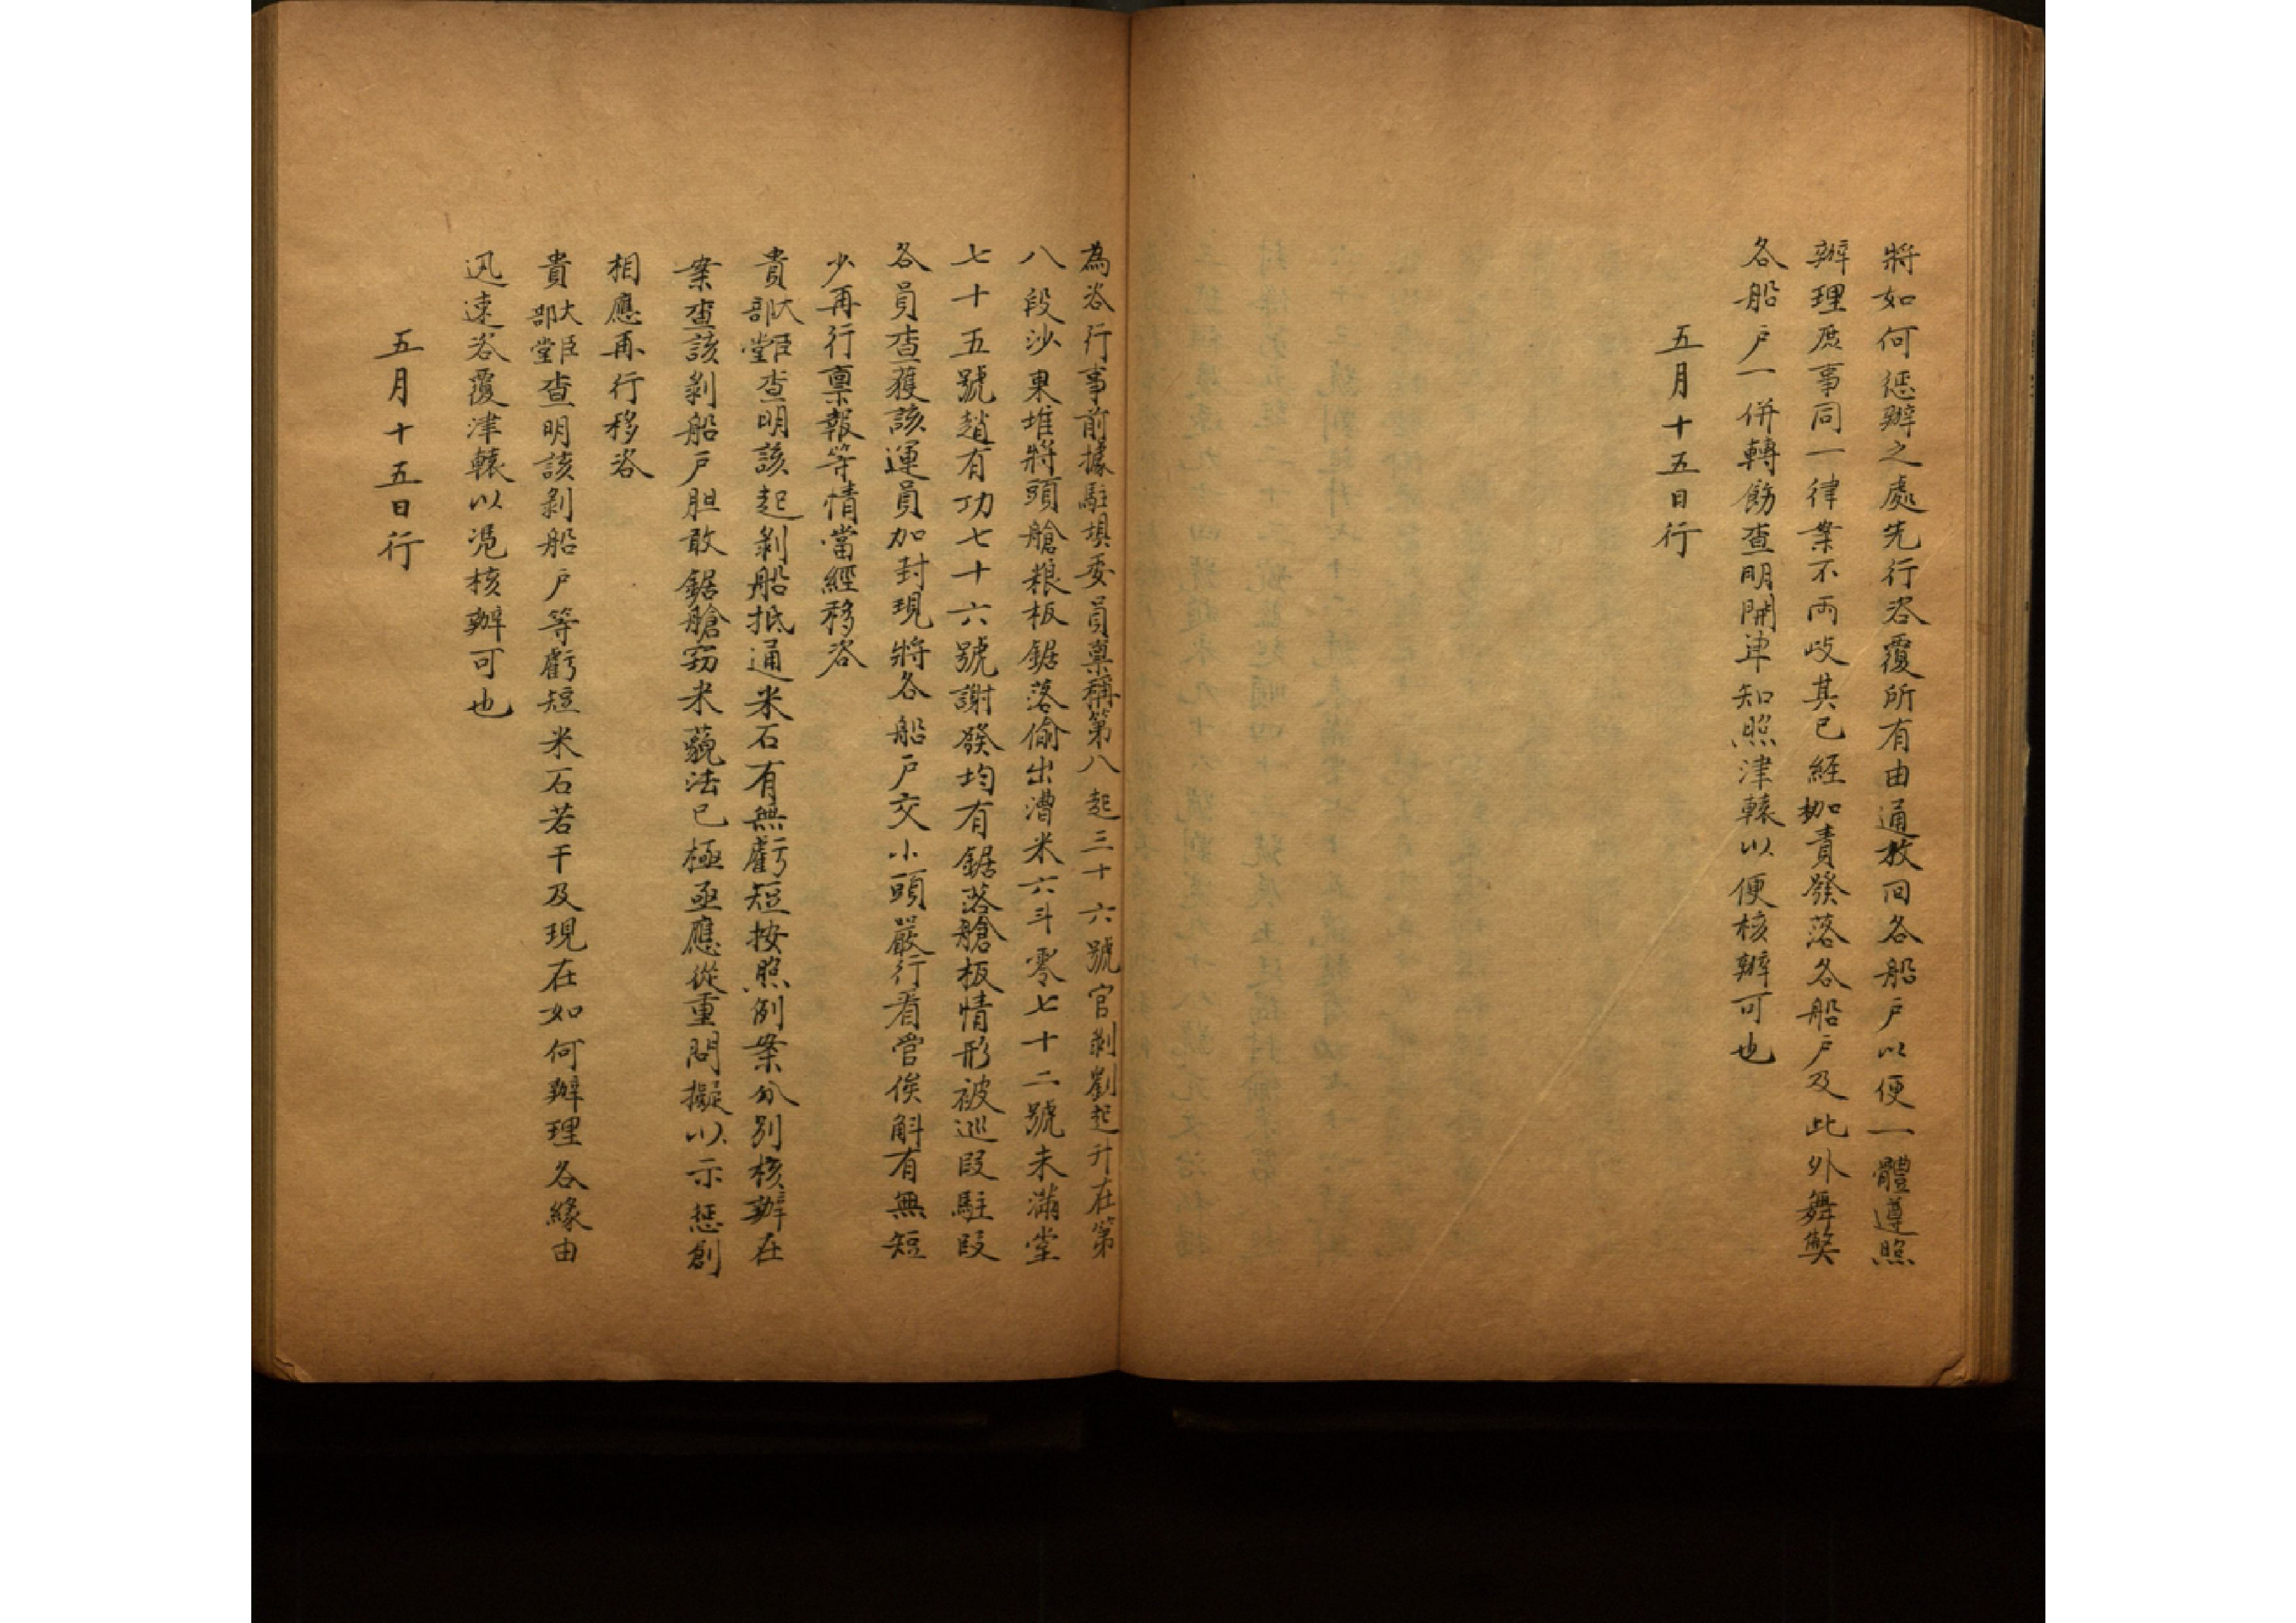 將如何懲辦之處先行咨覆所有由通放回各船户以便一體遵照
辦理庶事同一律案不兩歧其已經枷責發落各船户及此外舞弊
各船户一併轉飭查明開单知照津轅以便核辦可也
五月十五日行
為咨行事前據駐垻委員稟稱第八起三十六號官剥劉起升在第
八段沙果堆將頭艙粮板鋸落偷出漕米六斗零七十二號未滿堂
七十五號趙有功七十六號謝發均有鋸落艙板情形被巡段駐段
各員查獲該運員加封現將各船户交小頭嚴行看管俟斛有無短
少再行稟報等情當經移咨
貴大臣部堂查明該起剥船抵通米石有無虧短按照例案分別核辦在
案查該剥船户胆敢鋸艙窃米藐法已極亟應從重問擬以示懲創
相應再行移咨
貴大臣部堂查明該剥船户等虧短米石若干及現在如何辦理各緣由
迅速咨覆津轅以凴核辦可也
五月十五日行